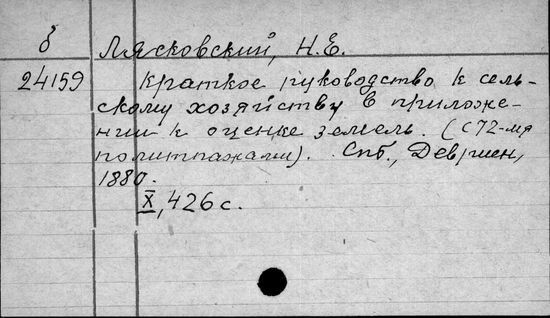 б Лясковский, Н.Е.
24159 Краткое руководство к сель-
скому хозяйству в приложе-
нии к оценке земель. (с 72-мя
политипажами). Спб., Девриен,
1880.
X, 426 с.